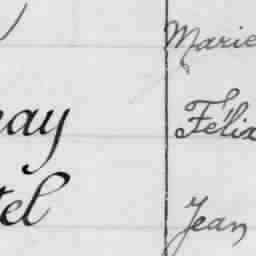 Marie
ay Félix
tel Jean